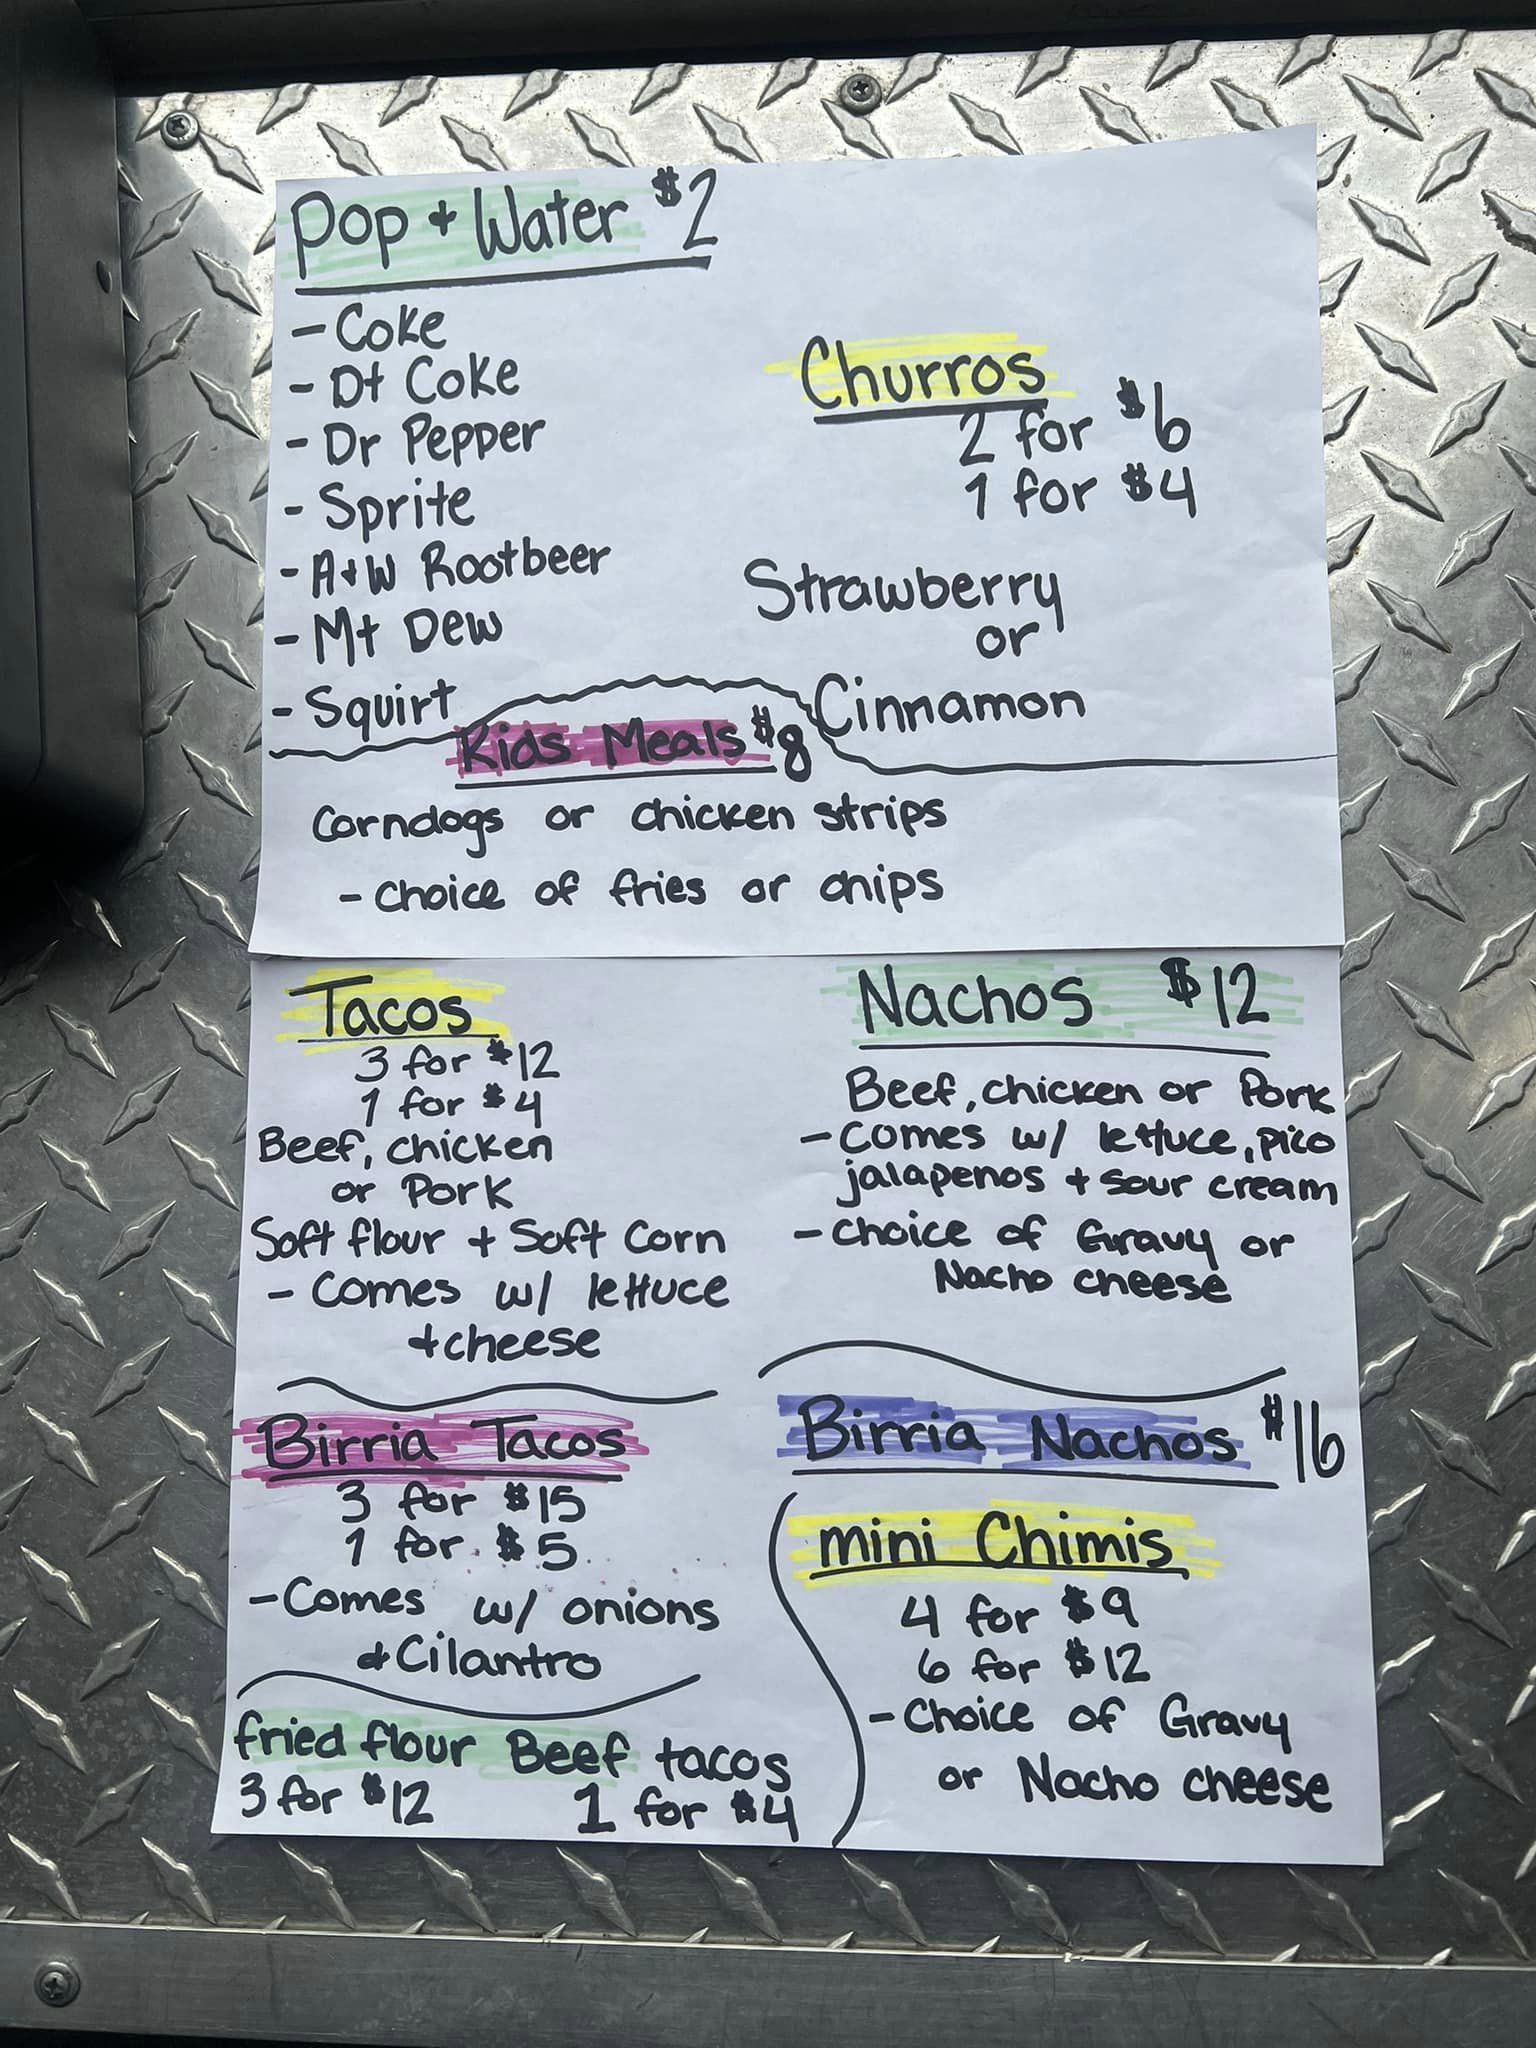 Pop + Water $2
- Coke
- Dt Coke
- Dr Pepper
- Sprite
- A+W Rootbeer
- Mt Dew
- Squirt
Churros
2 for $6
1 for $4
Strawberry
or
Cinnamon
Kids Meals $8
Corndogs or chicken strips
- choice of fries or chips
Tacos
3 for $12
1 for $4
Beef, chicken
or Pork
Soft flour + Soft Corn
- Comes w/ lettuce
+ cheese
Nachos $12
Beef, chicken or Pork
- Comes w/ lettuce, pico
jalapenos + sour cream
- Choice of Gravy or
Nacho cheese
Birria Tacos
3 for $15
1 for $5
- Comes w/ onions
+ Cilantro
fried flour Beef tacos
3 for $12 1 for $4
Birria Nachos $16
mini Chimis
4 for $9
6 for $12
- Choice of Gravy
or Nacho cheese